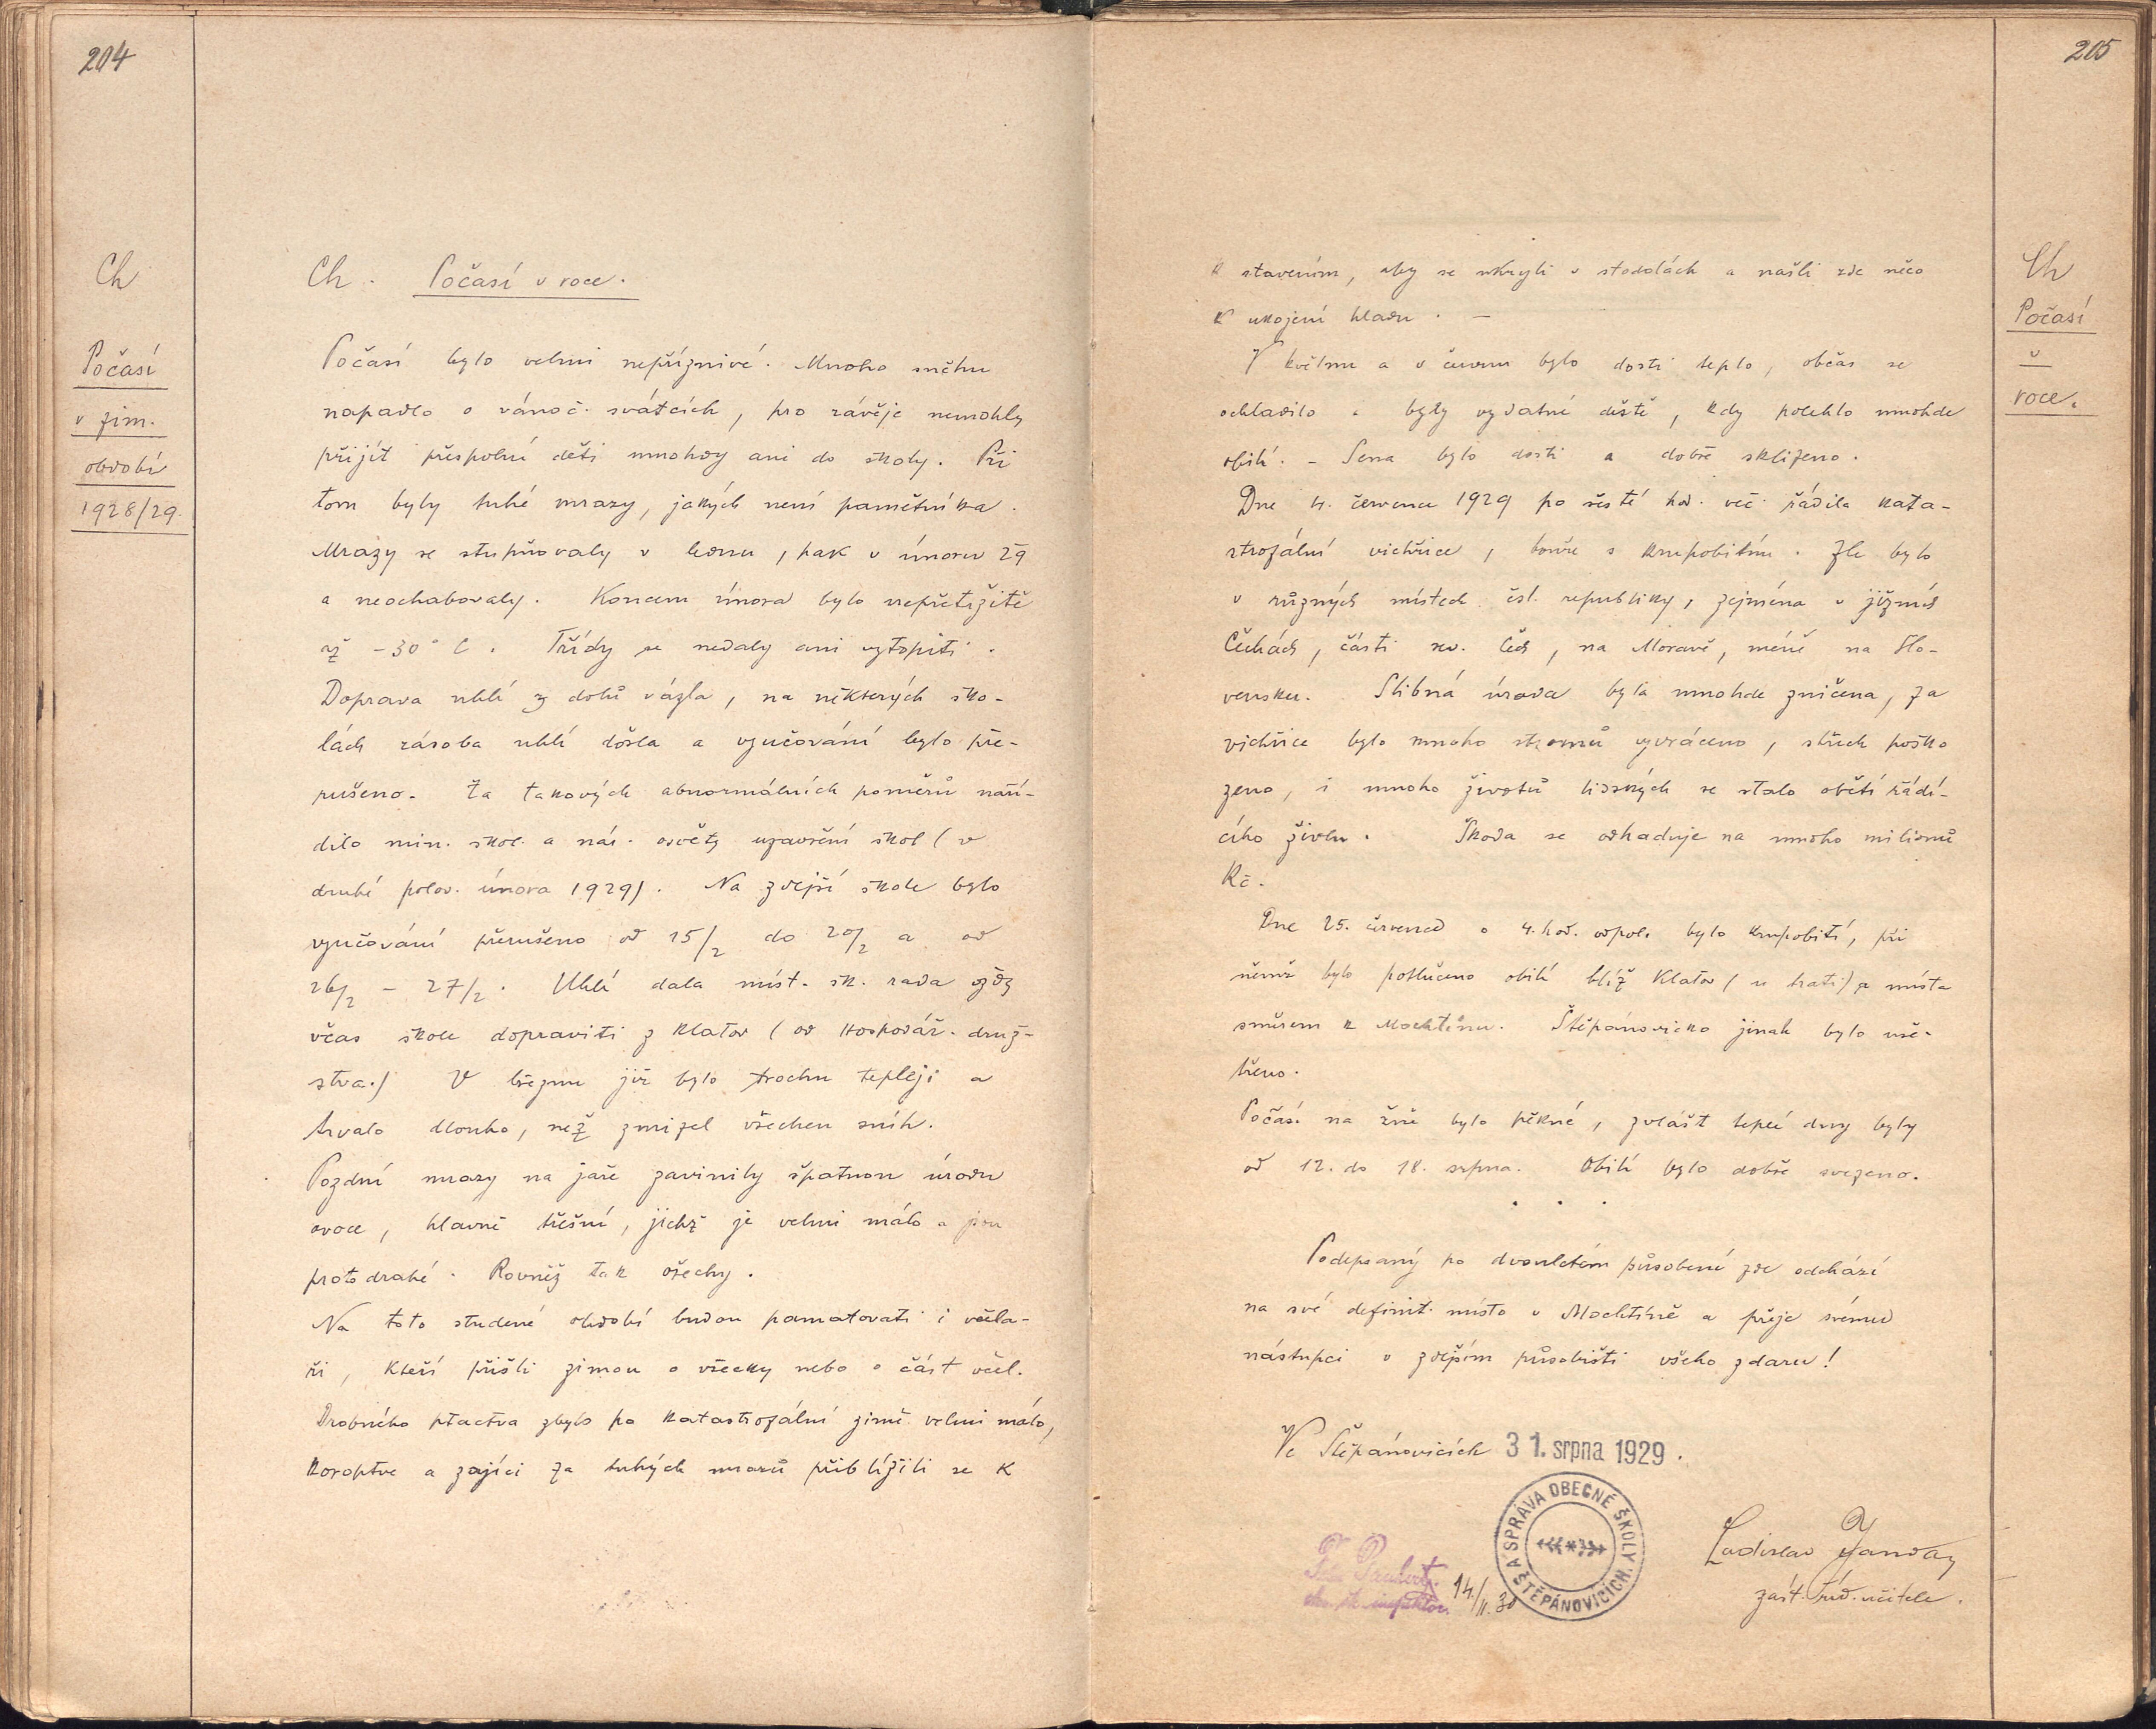 204
Ch
Počasí
v zim.
období
1928/29.
Ch. Počasí v roce.
Počasí bylo velmi nepříznivé. Mnoho sněhu
napadlo o vánoč. svátcích, pro závěje nemohly
přijít přespolní děti mnohdy ani do školy. Při
tom byly tuhé mrazy, jakých není pamětníka.
Mrazy se stupňovaly v lednu, pak v únoru 29
a neochabovaly. Koncem února bylo nepřetržitě
až -30° C. Třídy se nedaly ani vytopiti.
Doprava uhlí z dolů vázla, na některých ško-
lách zásoba uhlí došla a vyučování bylo pře-
rušeno. Za takových abnormálních poměrů naří-
dilo min. škol. a nár. osvěty uzavření škol (v
druhé polov. února 1929). Na zdejší škole bylo
vyučování přerušeno od 15/2 do 20/2 a od
26/2 - 27/2. Uhlí dala míst. šk. rada vždy
včas škole dopraviti z Klatov (od Hospodář. druž-
stva.) V březnu již bylo trochu tepleji a
trvalo dlouho, než zmizel všechen sníh.
Pozdní mrazy na jaře zavinily špatnou úrodu
ovoce, hlavně třešní, jichž je velmi málo a jsou
proto drahé. Rovněž tak ořechy.
Na toto studené období budou pamatovati i včela-
ři, kteří přišli zimou o všecky nebo o část včel.
Drobného ptactva zbylo po katastrofální zimě velmi málo,
koroptve a zajíci za tuhých mrazů přiblížili se k
205
Ch
Počasí
v
roce.
k stavením, aby se ukryli v stodolách a našli zde něco
k ukojení hladu. -
V květnu a v červnu bylo dosti teplo, občas se
ochladilo a byly vydatné deště, kdy polehlo mnohde
obilí. - Sena bylo dosti a dobře sklizeno.
Dne 4. července 1929 po šesté hod. več. řádila kata-
strofální vichřice, bouře s krupobitím. Zle bylo
v různých místech čsl. republiky, zejména v jižních
Čechách, části sev. Čech, na Moravě, méně na Slo-
vensku. Slibná úroda byla mnohde zničena, za
vichřice bylo mnoho stromů vyvráceno, střech poško
zeno, i mnoho životů lidských se stalo obětí řádí-
cího živlu. Škoda se odhaduje na mnoho milionů
Kč.
Dne 25. července o 4. hod. odpol. bylo krupobití, při
němž bylo potlučeno obilí blíž Klatov (u trati) a místa
směrem k Mochtínu. Štěpánovicko jinak bylo uše-
třeno.
Počasí na žně bylo pěkné, zvlášt teplé dny byly
od 12. do 18. srpna. Obilí bylo dobře svezeno.
. . .
Podepsaný po dvouletém působení zde odchází
na své definit. místo v Mochtíně a přeje svému
nástupci v zdejším působišti všeho zdaru!
Ve Štěpánovicích 31. srpna 1929.
SPRÁVA OBECNÉ ŠKOLY
V ŠTĚPÁNOVICÍCH.
Ladislav Janda
zást. říd. učitele.
14./II. 30